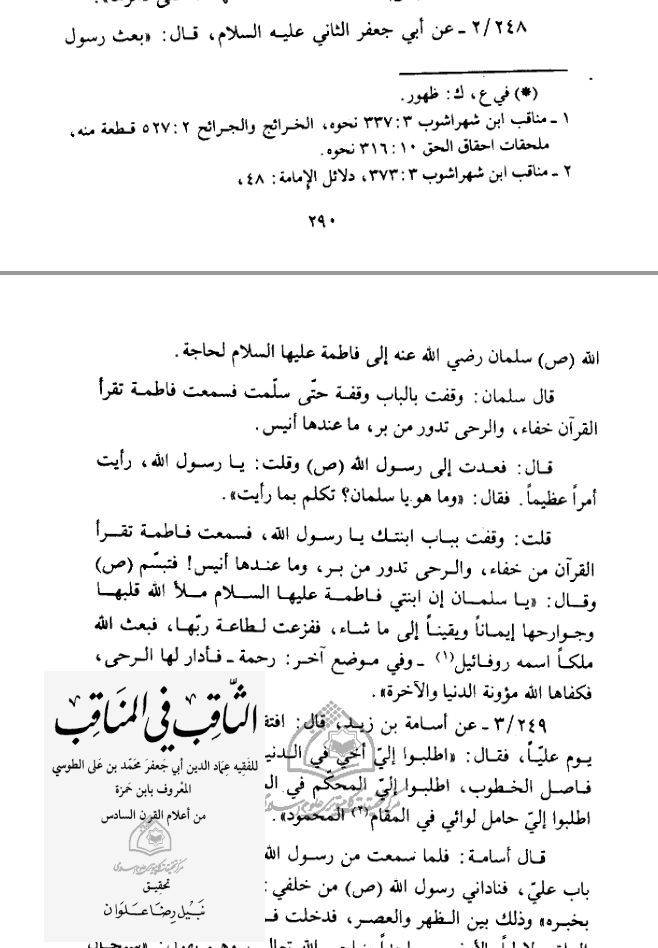 ٢/٢٤٨ ـ عن أبي جعفر الثاني عليه السلام، قال: «بعث رسول
(*) في ع، ك: ظهور.
١ ـ مناقب ابن شهراشوب ٣: ٣٣٧ نحوه، الخرائج والجرائح ٢: ٥٢٧ قطعة منه،
ملحقات احقاق الحق ١٠: ٣١٦ نحوه.
٢ ـ مناقب ابن شهراشوب ٣: ٣٧٣، دلائل الإمامة: ٤٨،
٢٩٠
الله (ص) سلمان رضي الله عنه إلى فاطمة عليها السلام لحاجة.
قال سلمان: وقفت بالباب وقفة حتّى سلّمت فسمعت فاطمة تقرأ
القرآن خفاء، والرحى تدور من بر، ما عندها أنيس.
قال: فعدت إلى رسول الله (ص) وقلت: يا رسول الله، رأيت
أمراً عظيماً. فقال: «وما هو يا سلمان؟ تكلم بما رأيت».
قلت: وقفت بباب ابنتك يا رسول الله، فسمعت فاطمة تقرأ
القرآن من خفاء، والرحى تدور من بر، وما عندها أنيس! فتبسّم (ص)
وقال: «يا سلمان إن ابنتي فاطمة عليها السلام ملأ الله قلبها
وجوارحها إيماناً ويقيناً إلى ما شاء، ففزعت لطاعة ربّها، فبعث الله
ملكاً اسمه روفائيل(١) ـ وفي موضع آخر: رحمة ـ فأدار لها الرحى،
فكفاها الله مؤونة الدنيا والآخرة».
٣/٢٤٩ ـ عن أسامة بن زيد، قال:
يوم عليّاً، فقال: «اطلبوا إليّ أخي في
فاصل الخطوب، اطلبوا إليّ المحكّم في
اطلبوا إليّ حامل لوائي في المقام(٢) المحمود».
قال أسامة: فلما سمعت من رسول الله
باب عليّ، فناداني رسول الله (ص) من خلفي:
بخبره» وذلك بين الظهر والعصر، فدخلت
الثّاقب في المناقب
للفقيه عماد الدين أبي جعفر محمّد بن علي الطوسي
المعروف بابن حمزة
من أعلام القرن السادس
تحقيق
نبيل رضا علوان